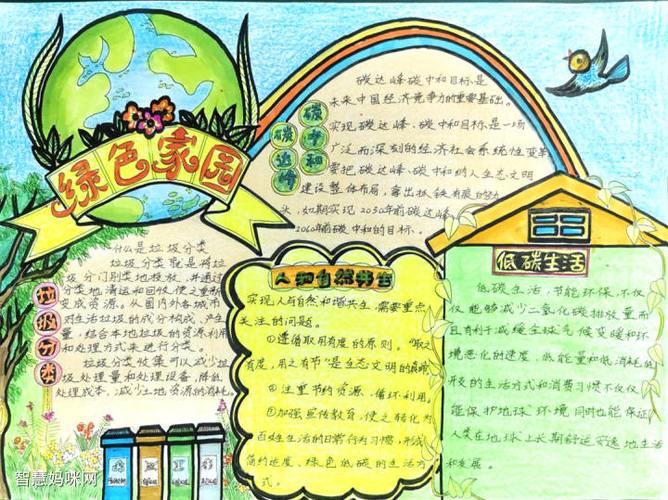 绿色家园
碳达峰
碳中和
碳达峰碳中和目标是
未来中国经济竞争力的重要基础。
实现碳达峰、碳中和目标是一场
广泛而深刻的经济社会系统性变革
要把碳达峰、碳中和纳入生态文明
建设整体布局,拿出抓铁有痕的
如期实现2030年前碳达峰
2060年前碳中和的目标。
垃圾分类
什么是垃圾分类
垃圾分类就是将垃
圾分门别类地投放,并通过
分类地清运和回收,使之重新
变成资源。从国内外各城市
对生活垃圾的成分构成、产生
量,结合本地垃圾的资源利用
和处理方式来进行分类。
垃圾分类收集可以减少垃
圾处理量和处理设备,降低
处理成本,减少土地资源的消耗
人和自然共生
实现人与自然和谐共生,需要重点
关注的问题。
①遵循取用有度的原则。“取之
有度,用之有节”是生态文明的真谛
②注重节约资源、循环利用,
③加强宣传教育,使之转化为
百姓生活的日常行为习惯,形成
简约适度、绿色低碳的生活方
式。
低碳生活
低碳生活,节能环保,不仅
仅能够减少二氧化碳排放量而
且有利于减缓全球气候变暖和环
境恶化的速度,低能量和低消耗的
开支的生活方式和消费习惯不仅仅
能保护地球环境同时也能保证
人类在地球上长期舒适安逸地生活
和发展。
智慧妈咪网